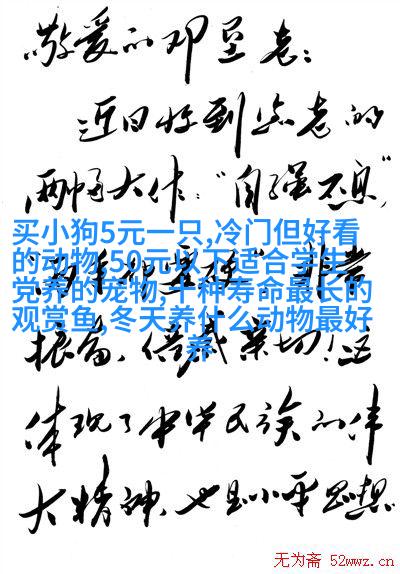 敬爱的邓垦老：
近日收到您老的
两幅大作："自强不息"
买小狗5元一只,冷门但好看
的动物,50元以下适合学生
党养的宠物,十种寿命最长的
观赏鱼,冬天养什么动物最好
养
非常
振奋、倍感亲切！这
体现了中华民族的伟
大精神,也是小平思想
无为斋 52wwz.cn